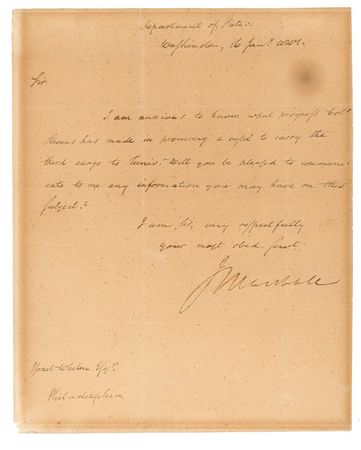 Department of State:
Washington, 16 Jany. 1801.
Sir
I am anxious to know what progress Col.
Stevens has made in procuring a vessel to carry the
third cargo to Tunis. Will you be pleased to communi-
cate to me any information you may have on this
subject.
I am, Sir, very respectfully
your most obed. Servt.
J Marshall
Israel Whelen Esqr.
Philadelphia